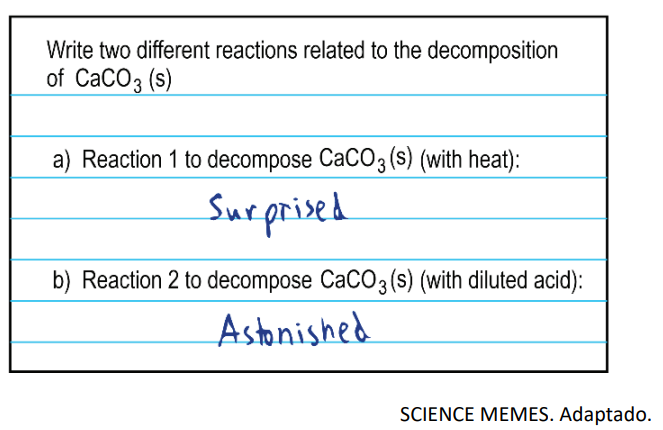 Write two different reactions related to the decomposition
of CaCO₃ (s)
a) Reaction 1 to decompose CaCO₃(s) (with heat):
Surprised
b) Reaction 2 to decompose CaCO₃(s) (with diluted acid):
Astonished
SCIENCE MEMES. Adaptado.